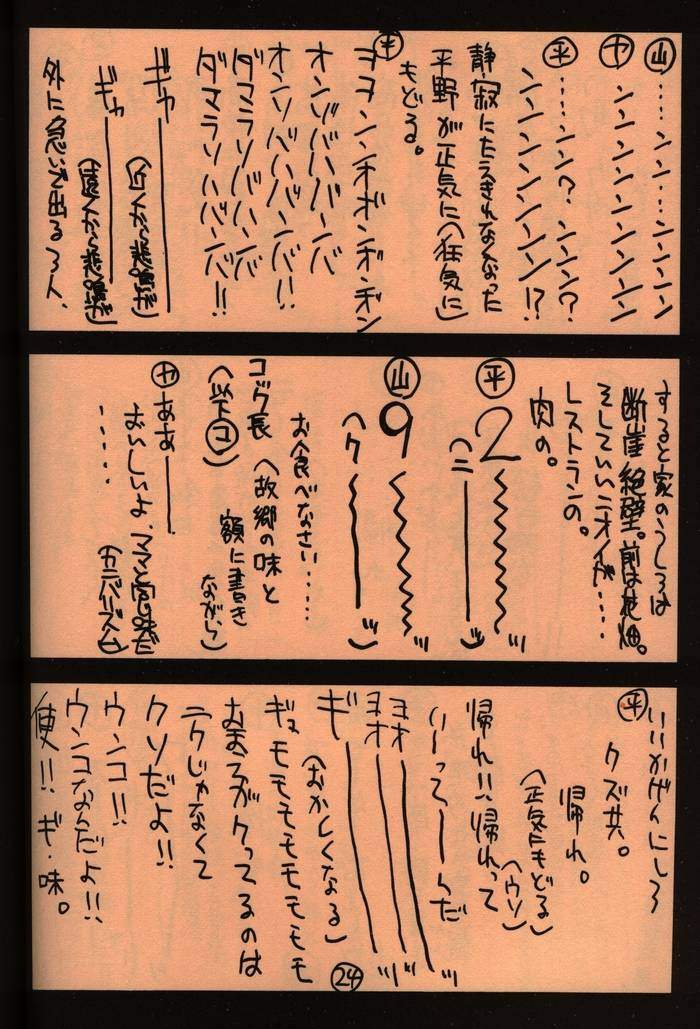 ㊤山…ンン…ンンンンン
ヤ ンンンンンンンン
平 …ンン？ンンン？
ンンンンンンンン!?
静寂にたえきれなくなった
平野が正気に(狂気に)
もどる。
平 ヨヨンンチボンギンギン
オンゾババババーバ
オンソバハバーンバ!!
ダマラソバハバーンバ
ダマラソハバーンバ!!
ギャ―――
(近くから悲鳴が)
ギャ―――
(遠くから悲鳴が)
外に急いで出る3人、
すると家のうしろは
断崖絶壁。前は花畑。
そしていいニオイが……
レストランの。
肉の。
平 2〜〜ッ
(ニ―――ッ)
山 9〜〜ッ
(ク〜〜ッ)
お食べなさい……
コック長(故郷の味と
額に書き
ながら)
(以下コ)
ヤ ああ―――
おいしいよ、ママと宮の味だ
……(カニバリズム)
平 いいかげんにしろ
クズ共。
帰れ。
(正気にもどる)
(ウソ)
帰れ!!帰れって
い―って―んだ
ヨオ―――ッ
ヨオ―――ッ
ギ―――ッ
(おかしくなる)
ギョモモモモモモモモ
おまえがクってるのは
ニクじゃなくて
クソだよ!!
ウンコ!!
ウンコなんだよ!!
便!!ギ・味。
24